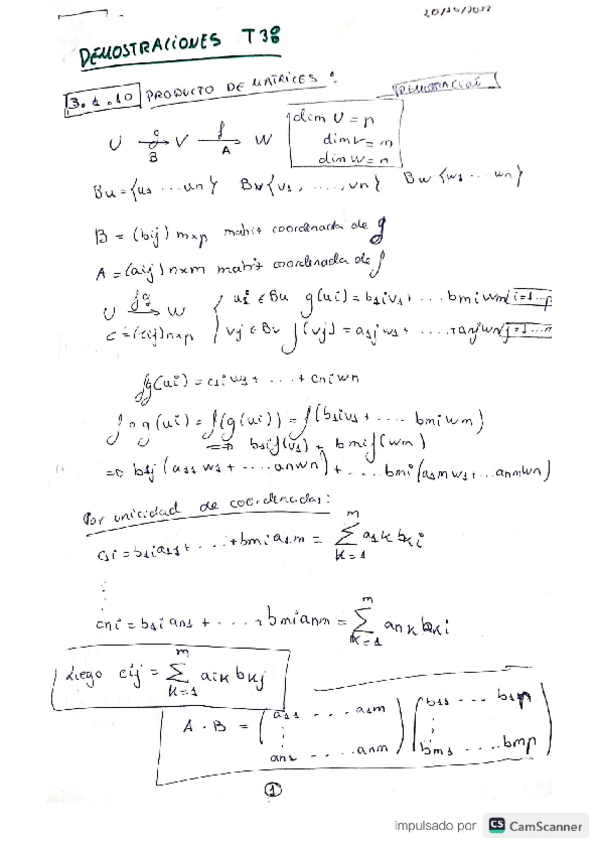 20/05/2022
DEMOSTRACIONES T38
3.1.10 PRODUCTO DE MATRICES: DEMOSTRACIÓN
U g→ V f→ W
B A
dim U = p
dim V = m
dim W = n
Bu = {u1 ... un} Bv {v1, ....., vn} Bw {w1 ... wn}
B = (bij) m×p matriz coordenada de g
A = (aij) n×m matriz coordenada de f
U fg→ W
C = (cij) n×p
ui ∈ Bu g(ui) = b1iv1 + ... bmiwm i=1...p
vj ∈ Bv f(vj) = a1jw1 + ..... + anjwn j=1...n
fg(ui) = c1iw1 + ... + cniwn
f∘g(ui) = f(g(ui)) = f(b1iv1 + .... bmiwm)
=> b1if(v1) + bmif(wm)
=> b1j (a11w1 + .... anwn) + ... bmi (a1mw1 + ... anmwn)
Por unicidad de coordenadas:
c1i = b1ia11 + ... + bmia1m = m∑k=1 a1k bki
⋮
cni = b1ian1 + ...., bmianm = m∑k=1 ank bki
Luego cij = m∑k=1 aik bkj
A · B = (a11 ... a1m) (b11 ... b1p)
⋮ ⋮
an1 ..... anm bm1 ..... bmp
1
impulsado por CS CamScanner